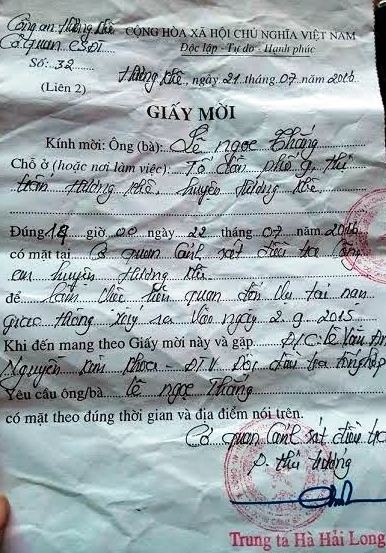 Công an Hương Khê CỘNG HÒA XÃ HỘI CHỦ NGHĨA VIỆT NAM
Cơ quan CSĐT Độc lập - Tự do - Hạnh phúc
Số: 32
Hương Khê, ngày 21 tháng 07 năm 2016
(Liên 2)
GIẤY MỜI
Kính mời: Ông (bà): Lê Ngọc Thắng
Chỗ ở (hoặc nơi làm việc): Tổ dân phố 9, thị
trấn Hương Khê, huyện Hương Khê
Đúng giờ 00 ngày 22 tháng 07 năm 2016
có mặt tại Cơ quan Cảnh sát điều tra Công
an huyện Hương Khê
để Làm việc liên quan đến vụ tai nạn
giao thông xảy ra vào ngày 2.9.2015
Khi đến mang theo Giấy mời này và gặp Đ/C: Lê Văn
Nguyễn Khoa - ĐTV Đội điều tra tổng hợp
Yêu cầu ông/bà Lê Ngọc Thắng
có mặt theo đúng thời gian và địa điểm nói trên.
Cơ quan Cảnh sát điều tra
P. thủ trưởng
Trung tá Hà Hải Long